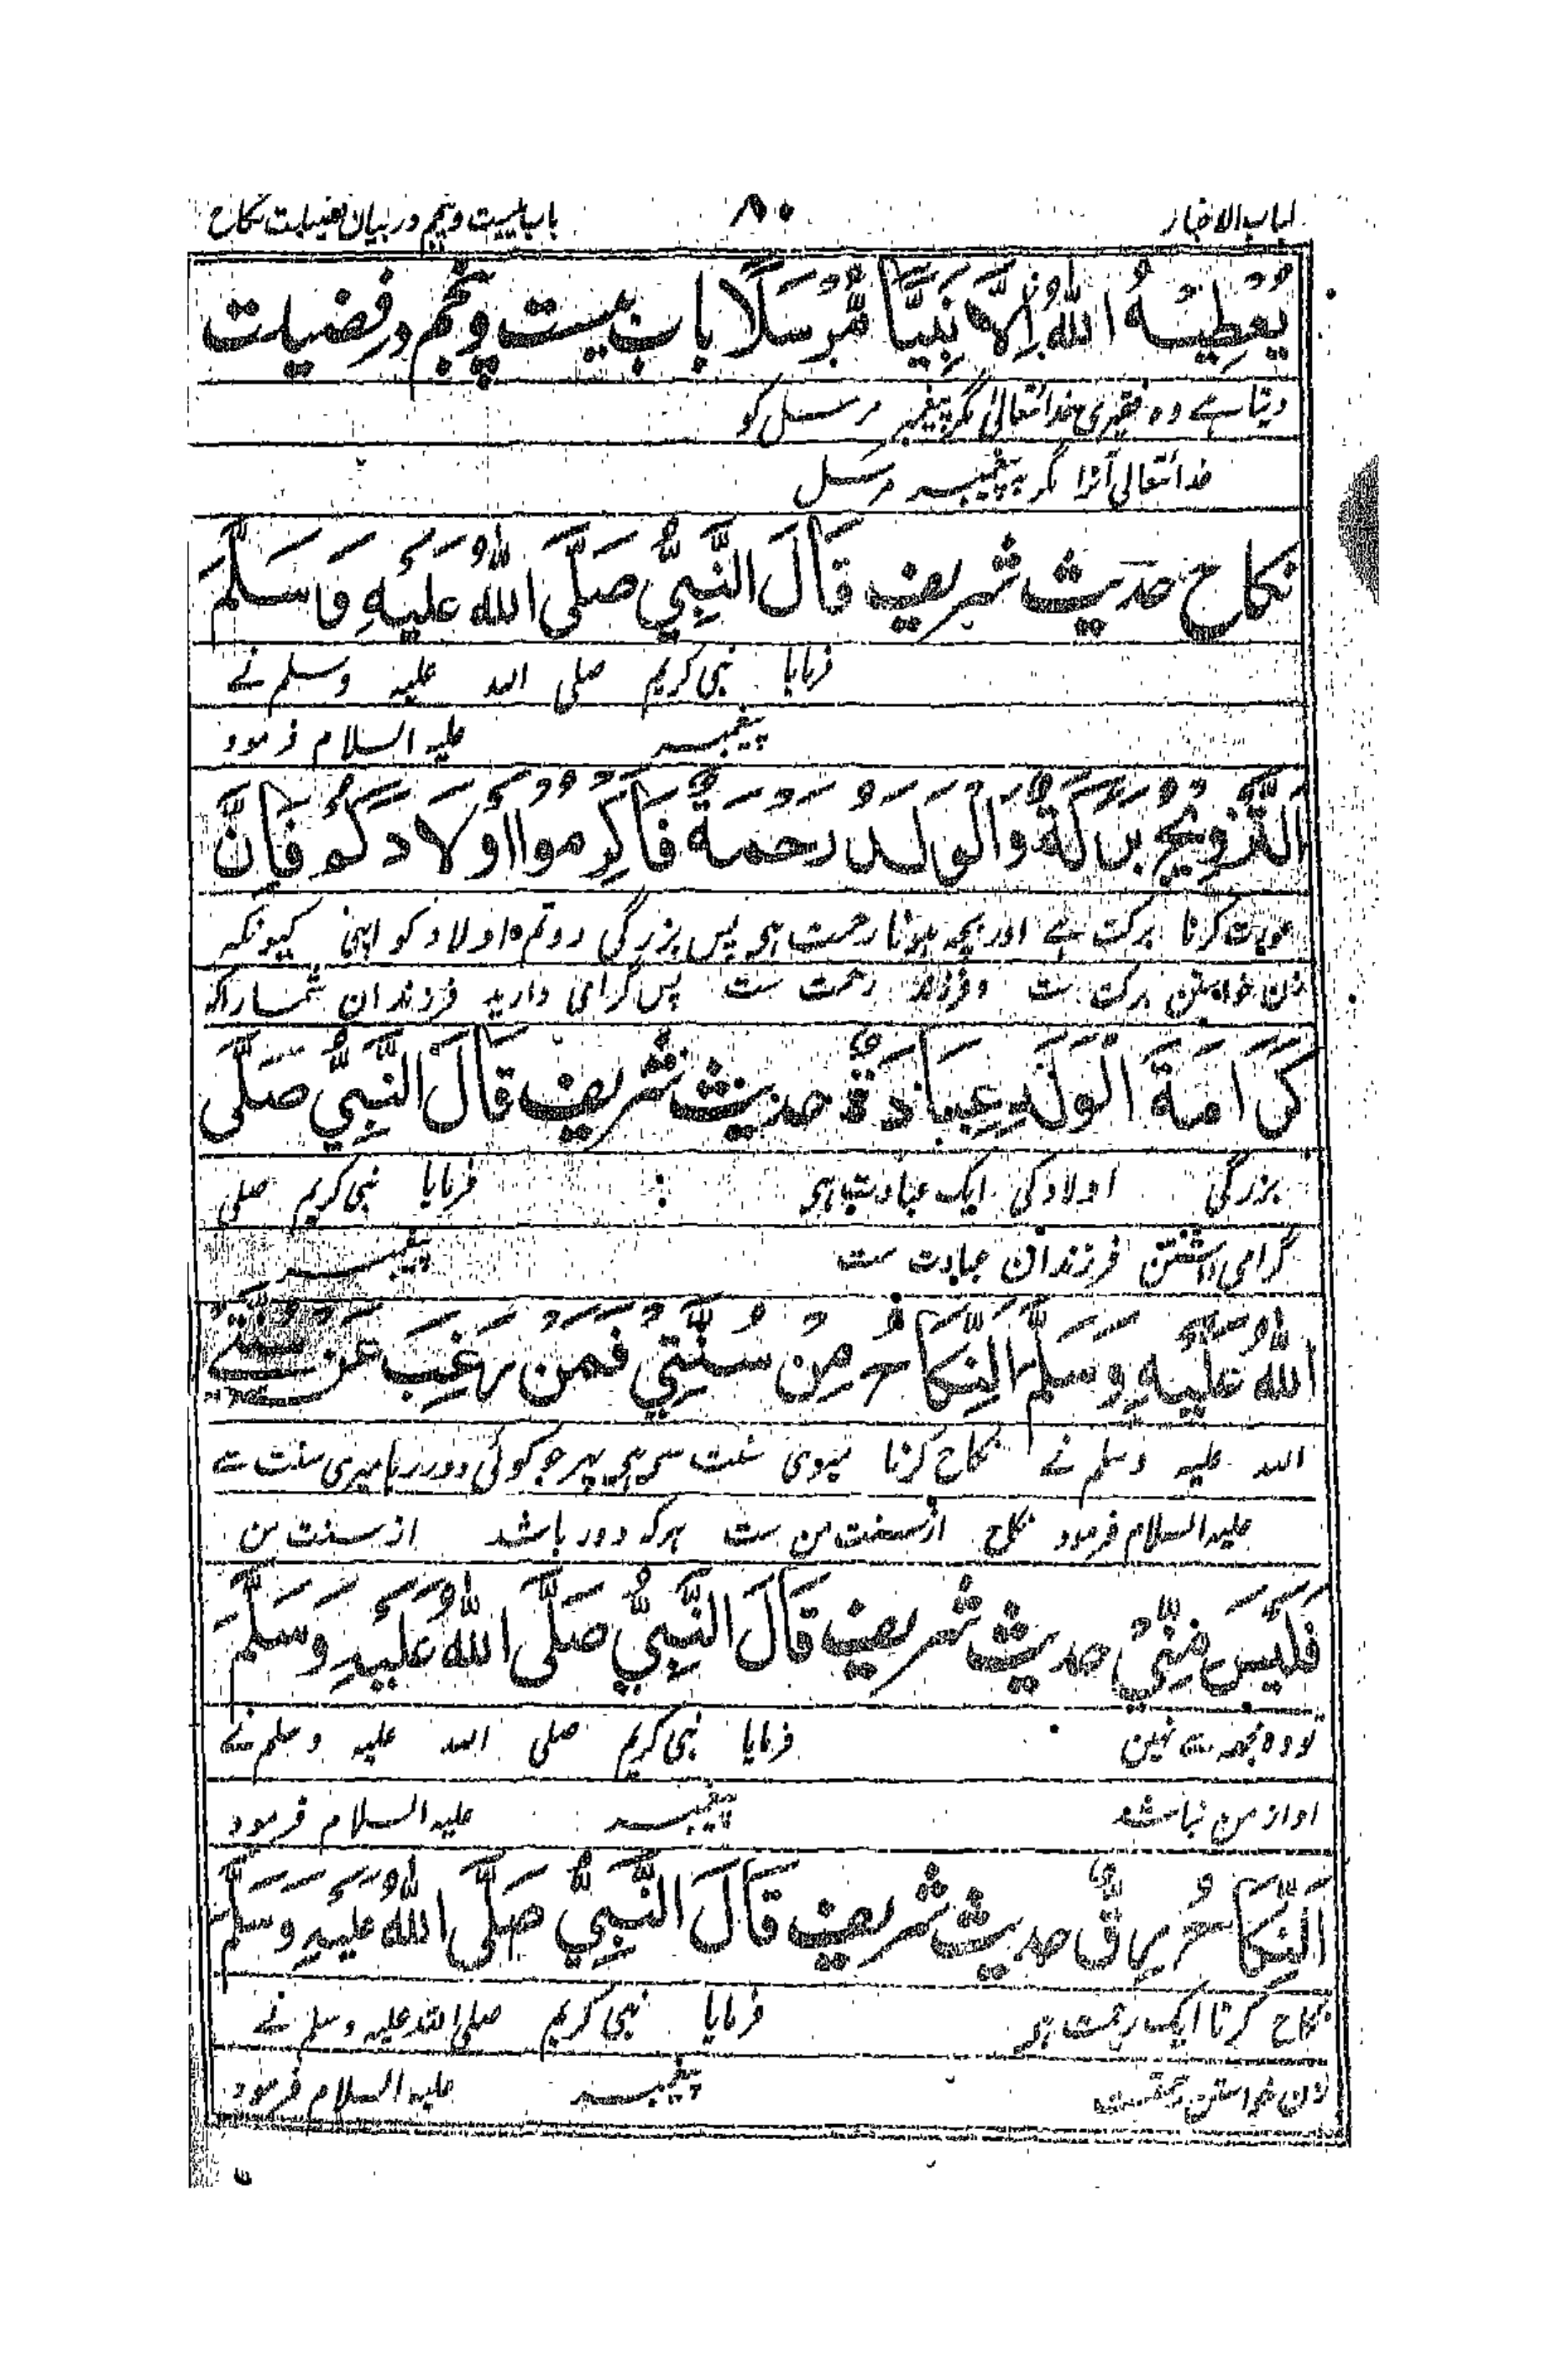 لباب الاخبار ۸۰ باب بیست و پنجم در بیان فضیلت نکاح
يُعْطِيْهِ اللّٰهُ اِلَّا نَبِيًّا مُّرْسَلًا باب بیست و پنجم در فضیلت
دیتا ہے وہ فقیری خدائتعالیٰ مگر پیغمبر مرسل کو
خدائتعالی آنرا مگر به پیغمبر مرسل
نکاح حدیث شریف قَالَ النَّبِيُّ صَلَّى اللّٰهُ عَلَيْهِ وَاسَلَّمَ
فرمایا نبی کریم صلی اللہ علیہ وسلم نے
پیغمبر علیہ السلام فرمود
اَلتَّزْوِيْجُ بَرَكَةٌ وَّالْوَلَدُ رَحْمَةٌ فَاَكْرِمُوْا اَوْلَادَكُمْ فَاِنَّ
کرنا برکت ہے اور بچہ ہونا رحمت ہی پس بزرگی دو تم اولاد کو اپنی کیونکہ
زن خواستن برکت ست و فرزند رحمت ست پس گرامی دارید فرزندان شمارا کہ
كَرَامَةَ الْوَلَدِ عِبَادَةٌ حدیث شریف قَالَ النَّبِيُّ صَلَّى
بزرگی اولاد کی ایک عبادت ہی فرمایا نبی کریم صلی
گرامی داشتن فرزندان عبادت ست پیغمبر
اللّٰهُ عَلَيْهِ وَسَلَّمَ اَلنِّكَاحُ مِنْ سُنَّتِيْ فَمَنْ رَغِبَ عَنْ سُنَّتِيْ
اللہ علیہ وسلم نے نکاح کرنا میری سنت سی ہی پہر جو کوئی دور رہا میری سنت سے
علیہ السلام فرمود نکاح از سنت من ست ہر کہ دور باشد از سنت من
فَلَيْسَ مِنِّيْ حدیث شریف قَالَ النَّبِيُّ صَلَّى اللّٰهُ عَلَيْهِ وَسَلَّمَ
تو وہ مجھہ سے نہین فرمایا نبی کریم صلی اللہ علیہ وسلم نے
او از من نباشد پیغمبر علیہ السلام فرمود
اَلنِّكَاحُ حدیث شریف قَالَ النَّبِيُّ صَلَّى اللّٰهُ عَلَيْهِ وَسَلَّمَ
نکاح کرنا ایک رحمت ہی فرمایا نبی کریم صلی اللہ علیہ وسلم نے
زن خواستن پیغمبر علیہ السلام فرمود